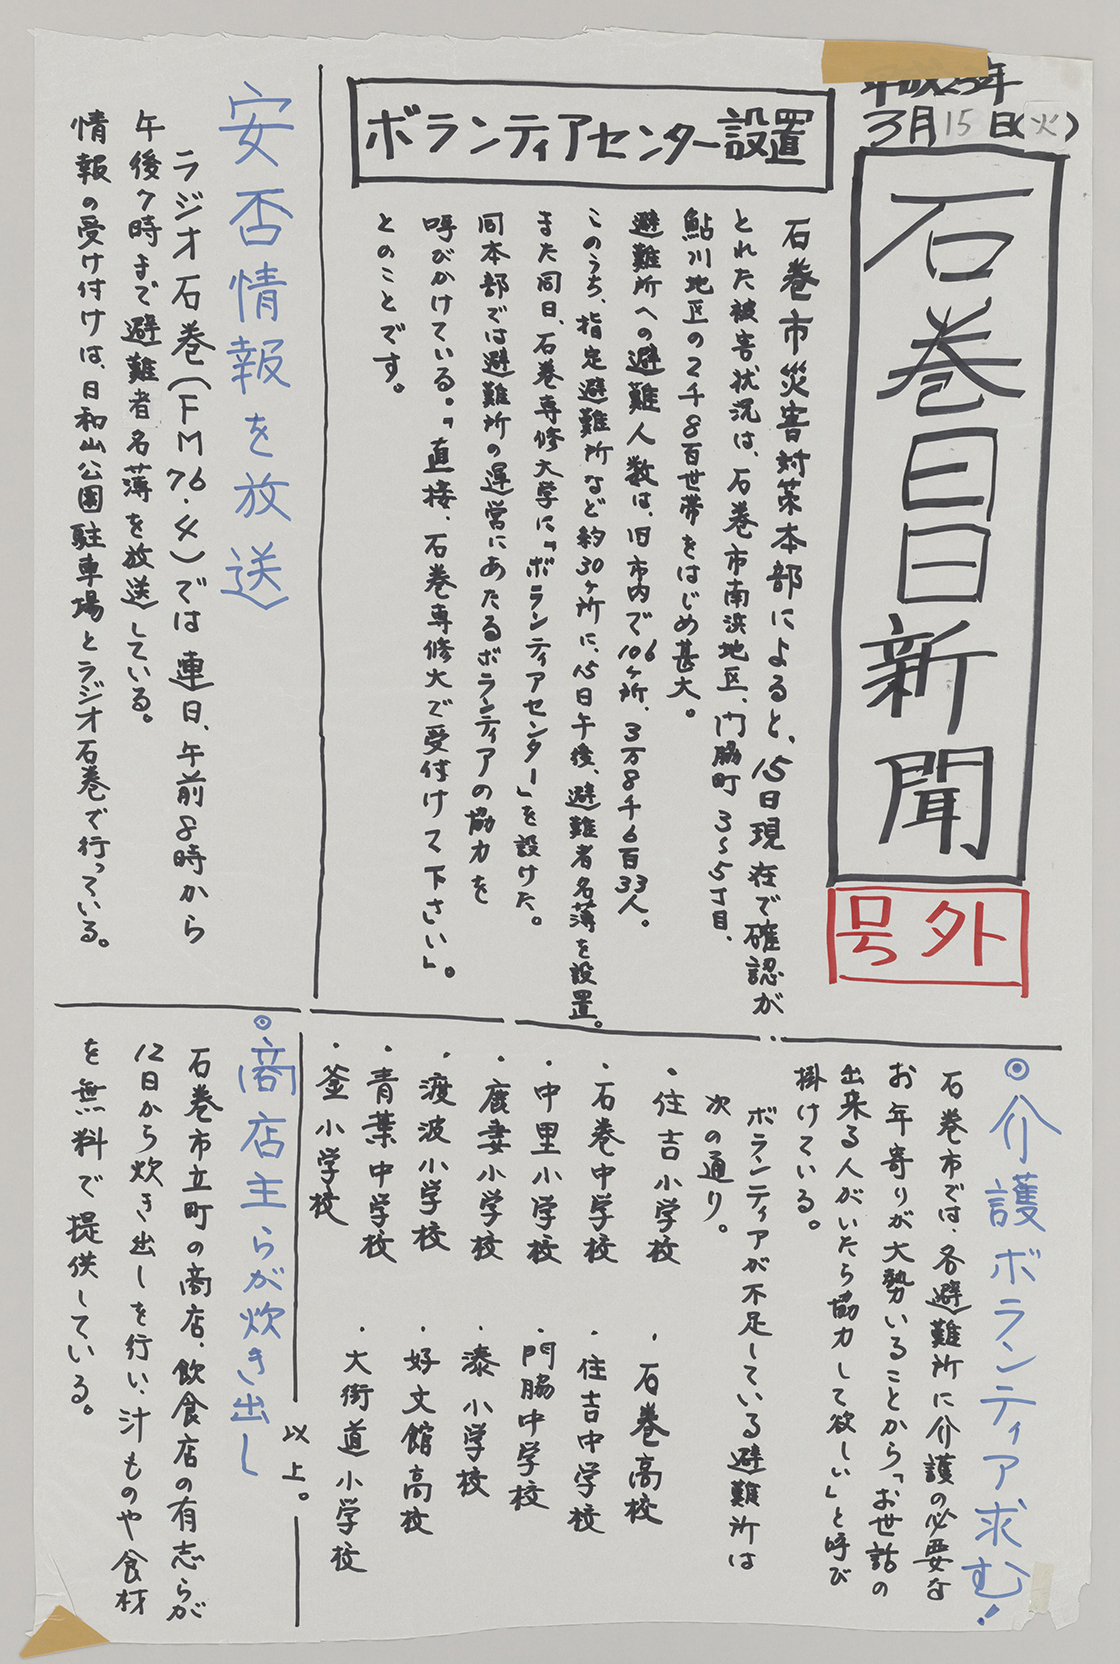 平成23年
3月15日(火)
石巻日日新聞
号外
ボランティアセンター設置
石巻市災害対策本部によると、15日現在で確認が
とれた被害状況は、石巻市南浜地区、門脇町3~5丁目、
鮎川地区の2千8百世帯をはじめ甚大。
避難所への避難人数は、旧市内で106ヶ所、3万8千6百33人。
このうち、指定避難所など約30ヶ所に、15日午後、避難者名薄を設置。
また同日、石巻専修大学に「ボランティアセンター」を設けた。
同本部では避難所の運営にあたるボランティアの協力を
呼びかけている。「直接、石巻専修大で受付けて下さい」。
とのことです。
安否情報を放送
ラジオ石巻(FM76.4)では連日、午前8時から
午後7時まで避難者名薄を放送している。
情報の受け付けは、日和山公園駐車場とラジオ石巻で行っている。
◎介護ボランティア求む!
石巻市では、各避難所に介護の必要な
お年寄りが大勢いることから「お世話の
出来る人がいたら協力して欲しい」と呼び
掛けている。
ボランティアが不足している避難所は
次の通り。
・住吉小学校 ・石巻高校
・石巻中学校 ・住吉中学校
・中里小学校 ・門脇中学校
・鹿妻小学校 ・湊小学校
・渡波小学校 ・好文館高校
・青葉中学校 ・大街道小学校
・釜小学校
以上。
◎商店主らが炊き出し
石巻市立町の商店、飲食店の有志らが
12日から炊き出しを行い、汁ものや食材
を無料で提供している。